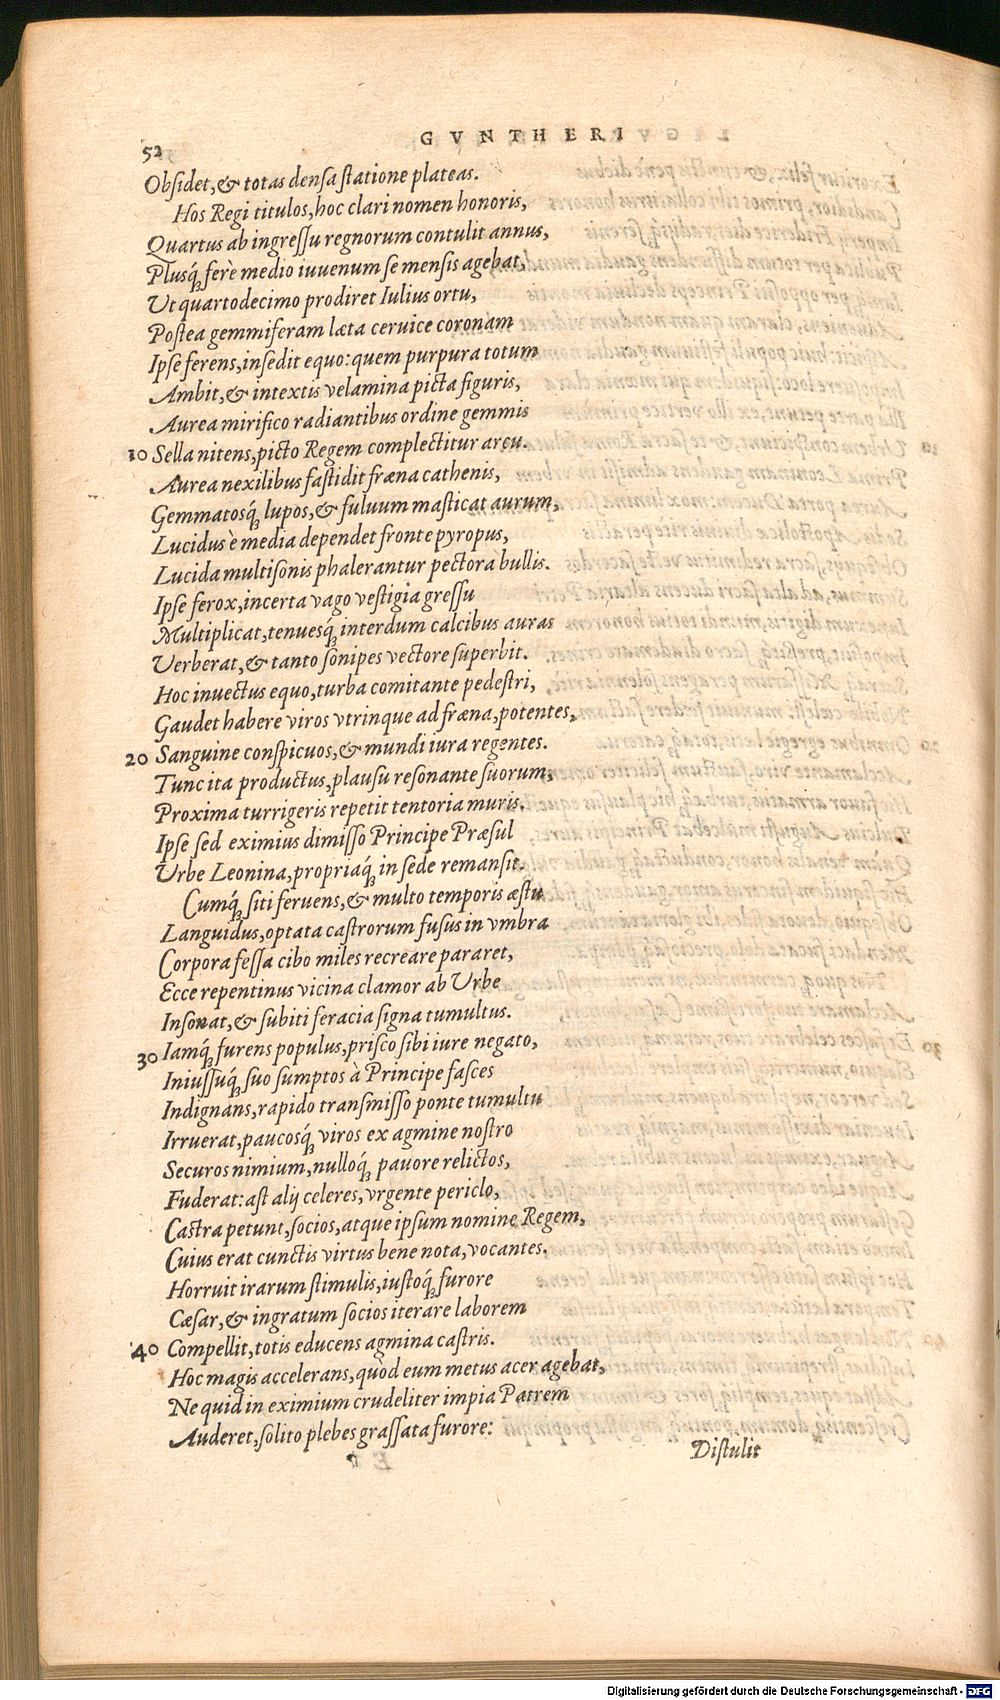 52
GVNTHERI
Obsidet, & totas densa statione plateas.
Hos Regi titulos, hoc clari nomen honoris,
Quartus ab ingressu regnorum contulit annus,
Plusq́; ferè medio iuuenum se mensis agebat,
Ut quartodecimo prodiret Iulius ortu,
Postea gemmiferam læta ceruice coronam
Ipse ferens, insedit equo: quem purpura totum
Ambit, & intextis velamina picta figuris,
Aurea mirifico radiantibus ordine gemmis
10 Sella nitens, picto Regem complectitur arcu.
Aurea nexilibus fastidit fræna cathenis,
Gemmatosq́; lupos, & fuluum masticat aurum,
Lucidus è media dependet fronte pyropus,
Lucida multisonis phalerantur pectora bullis.
Ipse ferox, incerta vago vestigia gressu
Multiplicat, tenuesq́; interdum calcibus auras
Verberat, & tanto sonipes vectore superbit.
Hoc inuectus equo, turba comitante pedestri,
Gaudet habere viros vtrinque ad fræna, potentes,
20 Sanguine conspicuos, & mundi iura regentes.
Tunc ita productus, plausu resonante suorum,
Proxima turrigeris repetit tentoria muris.
Ipse sed eximius dimisso Principe Præsul
Urbe Leonina, propriaq́; in sede remansit.
Cumq́; siti feruens, & multo temporis æstu
Languidus, optata castrorum fusus in vmbra
Corpora fessa cibo miles recreare pararet,
Ecce repentinus vicina clamor ab Urbe
Insonat, & subiti feracia signa tumultus.
30 Iamq́; furens populus, prisco sibi iure negato,
Iniussuq́; suo sumptos à Principe fasces
Indignans, rapido transmisso ponte tumultu
Irruerat, paucosq́; viros ex agmine nostro
Securos nimium, nulloq́; pauore relictos,
Fuderat: ast alij celeres, vrgente periclo,
Castra petunt, socios, atque ipsum nomine Regem,
Cuius erat cunctis virtus bene nota, vocantes.
Horruit irarum stimulis, iustoq́; furore
Cæsar, & ingratum socios iterare laborem
40 Compellit, totis educens agmina castris.
Hoc magis accelerans, quòd eum metus acer agebat,
Ne quid in eximium crudeliter impia Patrem
Auderet, solito plebes grassata furore:
Distulit
Digitalisierung gefördert durch die Deutsche Forschungsgemeinschaft - DFG